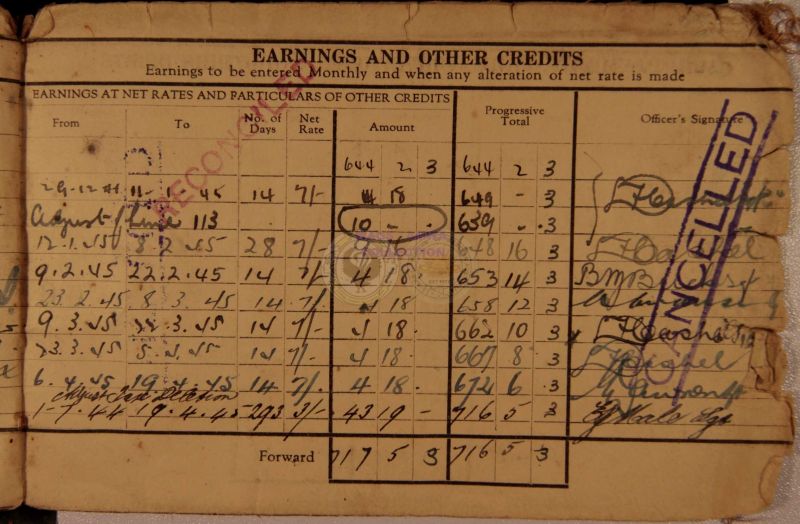 EARNINGS AND OTHER CREDITS
Earnings to be entered Monthly and when any alteration of net rate is made
EARNINGS AT NET RATES AND PARTICULARS OF OTHER CREDITS
From To No. of Days Net Rate Amount Progressive Total Officer's Signature
RECONCILED
CANCELLED
644 2 3 644 2 3
29-12-44 11-1-45 14 7/- 4 18 649 - 3
August / Line 113 10 - . 639 - .3
12.1.45 8 2.45 28 7/- 9 16 648 16 3
9.2.45 22.2.45 14 7/- 4 18 . 653 14 3
23 2.45 8 3.45 14 7/- 4 18 658 12 3
9.3.45 22.3.45 14 7/- 4 18. 662 10 3
23.3.45 5.4.45 14 7/- 4 18. 667 8 3
6.4.45 19.4.45 14 7/- 4 18 672 6 .3
1-7.44 19.4.45 293 3/- 43 19 - 716 5 3
Forward 717 5 3 716 5 3